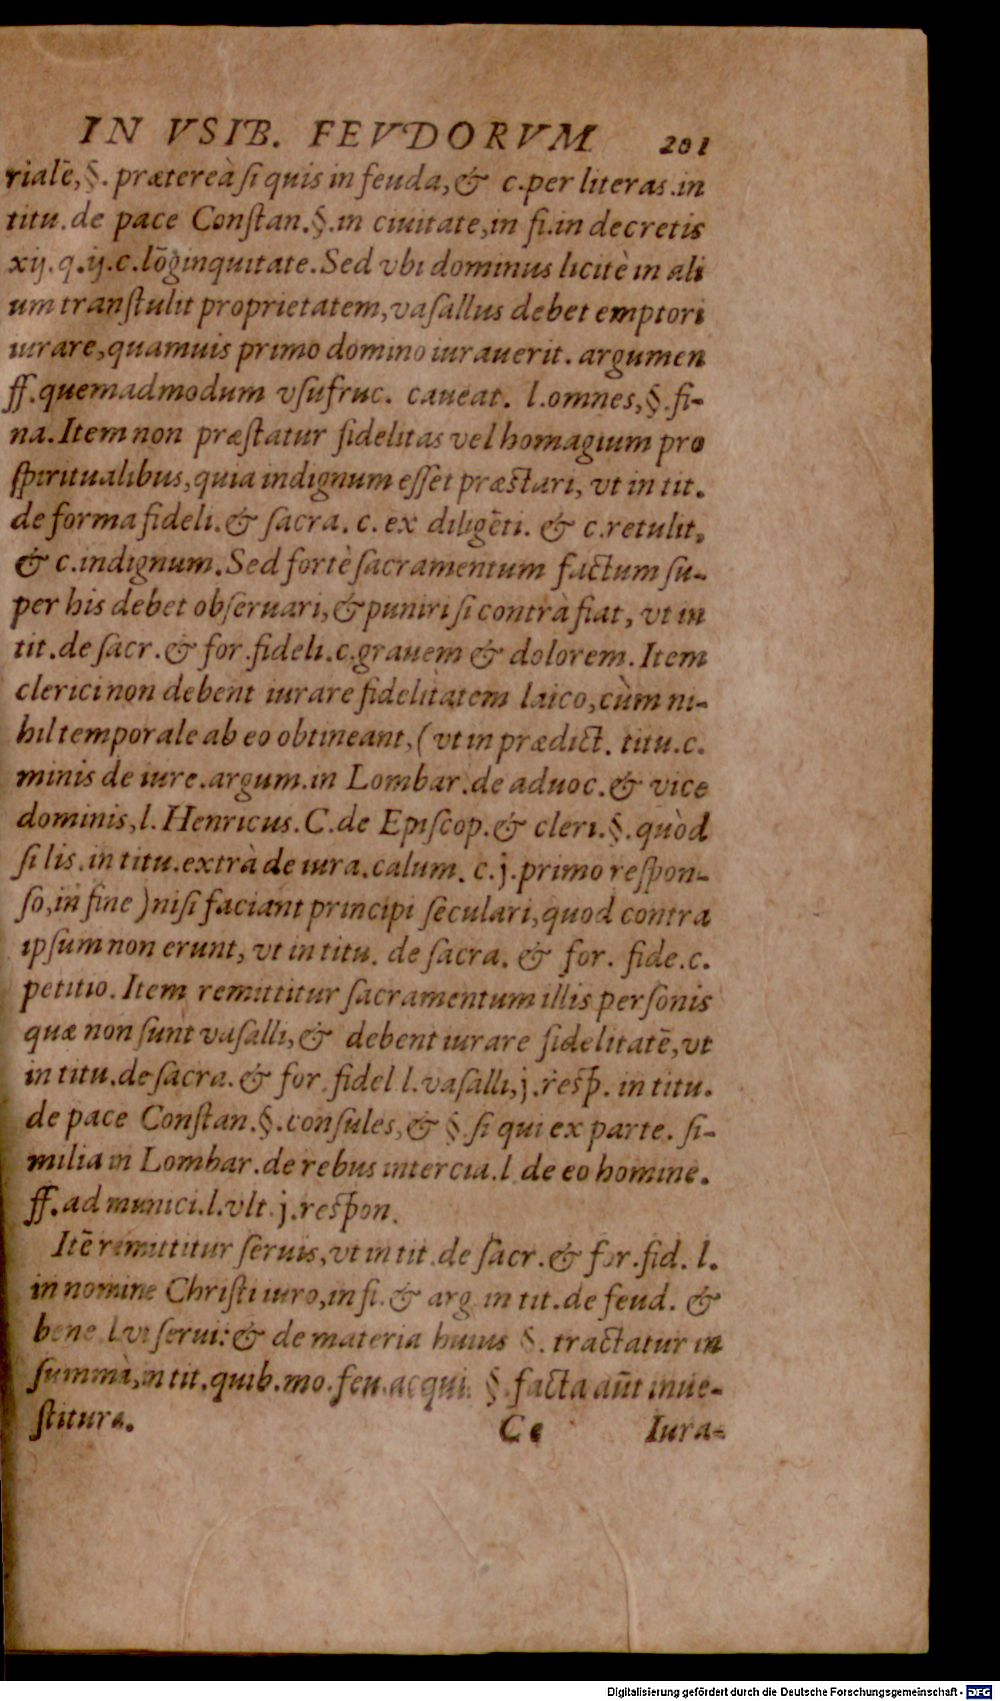 IN VSIB. FEVDORVM 201
rialē,§. prætereà si quis in feuda,& c.per literas.in
titu.de pace Constan.§.in ciuitate,in fi.in decretis
xij.q.ij.c.lōginquitate.Sed vbi dominus licitè in ali
um transtulit proprietatem,vasallus debet emptori
iurare,quamuis primo domino iurauerit. argumen
ff.quemadmodum vsufruc. caueat. l.omnes,§.fi-
na.Item non præstatur fidelitas vel homagium pro
spiritualibus,quia indignum esset præstari, vt in tit.
de forma fideli.& sacra. c. ex diligēti. & c.retulit,
& c.indignum.Sed fortè sacramentum factum su-
per his debet obseruari,& puniri si contrà fiat, vt in
tit.de sacr.& for.fideli.c.grauem & dolorem. Item
clerici non debent iurare fidelitatem laico,cùm ni-
hil temporale ab eo obtineant,(vt in prædict. titu.c.
minis de iure.argum.in Lombar.de aduoc.& vice
dominis,l. Henricus. C.de Episcop.& cleri.§.quòd
si lis.in titu.extrà de iura.calum. c.j.primo respon-
so,in fine )nisi faciant principi seculari,quod contra
ipsum non erunt, vt in titu. de sacra. & for. fide.c.
petitio. Item remittitur sacramentum illis personis
quæ non sunt vasalli,& debent iurare fidelitatē,vt
in titu.de sacra.& for.fidel l.vasalli,j.resp. in titu.
de pace Constan.§.consules,& §.si qui ex parte. si-
milia in Lombar.de rebus intercia.l de eo homine.
ff.ad munici.l.vlt.j.respon.
Itē remittitur seruis,vt in tit.de sacr.& for.fid. l.
in nomine Christi iuro,in fi.& arg in tit.de feud. &
bene l.vt serui:& de materia huius §. tractatur in
summa,in tit.quib.mo.feu.acqui. §.facta aūt inue-
stitura. Cc Iura-
Digitalisierung gefördert durch die Deutsche Forschungsgemeinschaft - DFG